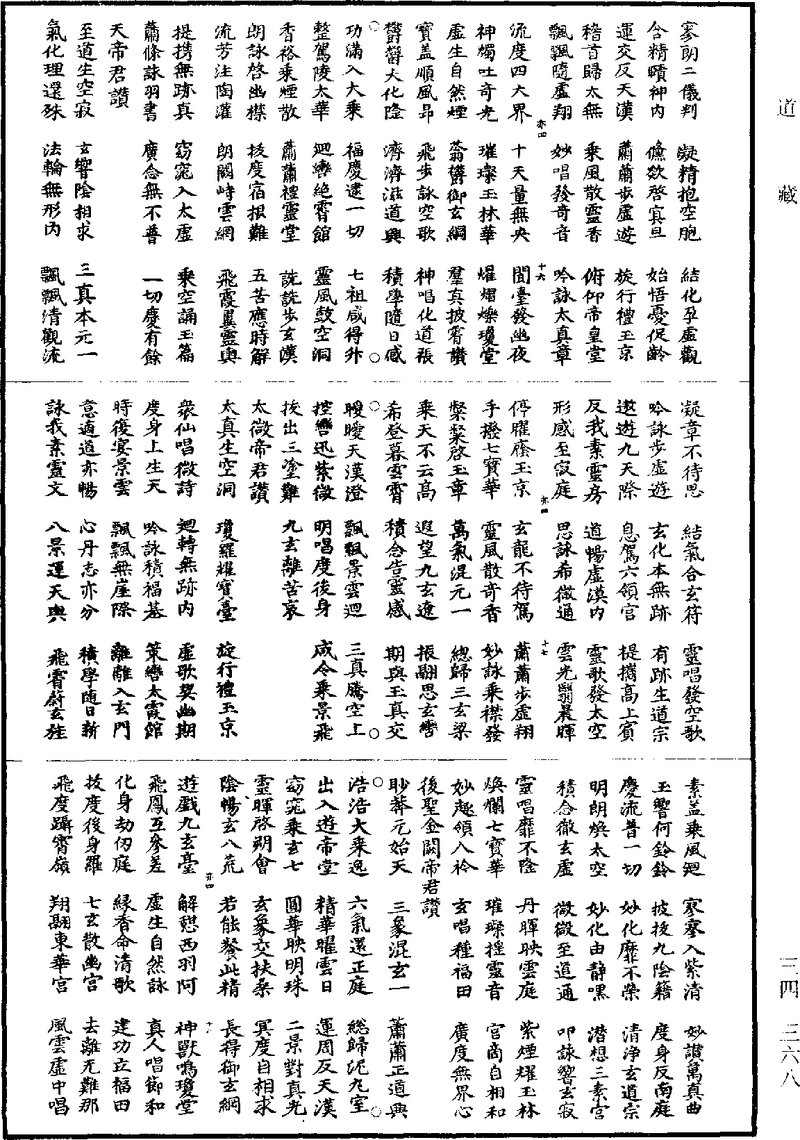 道藏
寥朗二儀判 凝精抱空胞 結化孕虛觀
含精賾神內 儵欻啓冥旦 始悟憂促齡
運交反天漢 蕭蕭步虛遊 旋行禮玉京
稽首歸太無 乘風散靈香 俯仰帝皇堂
飄飄隨虛翔 妙唱發奇音 吟詠太真章
亦四 十六
流度四大界 十天量無央 閒臺發幽夜
神燭吐奇光 璀璨玉林華 燿熠爍瓊堂
虛生自然煙 蓊欝御玄綱 羣真披霄讚
寶蓋順風昂 飛步詠空歌 神唱化道張
欝欝大化隆 濟濟滋道興 積學隨日感
○ ○
功滿入大乘 福慶逮一切 七祖咸得升
整駕陵太華 迴轡絕霄館 靈風鼓空洞
香裕乘煙散 蕭蕭禮靈堂 詵詵步玄漢
朗詠啓幽襟 拔度宿根難 五苦應時解
流芳注陶灌 朗闕峙雲網 飛霞翼靈輿
提携無跡真 窈窕入太虛 乘空誦玉篇
蕭條詠羽書 廣念無不普 一切慶有餘
天帝君讚
至道生空寂 玄響陰相求 三真本元一
氣化理還殊 法輪無形內 飄飄清觀流
凝章不待思 結氣合玄符 靈唱發空歌
吟詠步虛遊 玄化本無跡 有跡生道宗
遨遊九天際 息駕六領宮 提攜高上賓
反我素靈房 道暢虛漢內 靈歌發太空
形感至寂庭 思詠希微通 雲光翳晨暉
亦四 十七
停腥廕玉京 玄龍不待駕 蕭蕭步虛翔
手撥七寶華 靈風散奇香 妙詠乘襟發
粲粲啓玉章 萬氣混元一 總歸三玄梁
乘天不云高 遐望九玄遼 振翮思玄轡
希登暮雲霄 積念告靈感 期與玉真交
○ ○
曖曖天漢澄 飄飄景雲迴 三真騰空上
控轡迅紫微 明唱度後身 咸令乘景飛
拔出三塗難 九玄離苦哀
太微帝君讚
太真生空洞 瓊羅耀寶臺 旋行禮玉京
衆仙唱微詩 迴轉無跡內 虛歌契幽期
度身上生天 吟詠積福基 策轡太霞館
時復宴景雲 飄飄無崖際 離離入玄門
意適道亦暢 心丹志亦分 積學隨日新
詠我素靈文 八景運天輿 飛霄蔚玄
素蓋乘風迴 寥寥入紫清 妙讚萬真曲
玉響何鈴鈴 拔拔九陰籍 度身反南庭
慶流普一切 妙化靡不榮 清淨玄道宗
明朗煥太空 妙化由靜嘿 潛想三素宮
積念徹玄虛 微微至道通 叩詠響玄寂
靈唱靡不隆 丹暉映雲庭 紫煙耀玉林
煥爛七寶華 璀璨瑤靈音 宮商自相和
妙趣領八衿 玄唱種福田 廣度無界心
後聖金闕帝君讚
眇莽元始天 三象混玄一 蕭蕭正道興
○ ○
浩浩大乘逸 六氣還正庭 總歸泥九室
出入遊帝堂 精華曜雲日 運周反天漢
窈窕乘玄七 圓華映明珠 二景對真光
靈暉啓朔會 玄象交扶桑 冥度自相求
陰暢玄八荒 若能餐此精 長得御玄綱
亦四 十八
遊戲九玄臺 解憩西羽阿 神獸鳴瓊堂
飛鳳互參差 虛生自然詠 真人唱節和
化身劫仞庭 綠香命清歌 建功立福田
拔度後身羅 七玄散幽宮 去離元難那
飛度躡霄嶺 翔翮東華宮 風雲虛中唱
三四 三六八